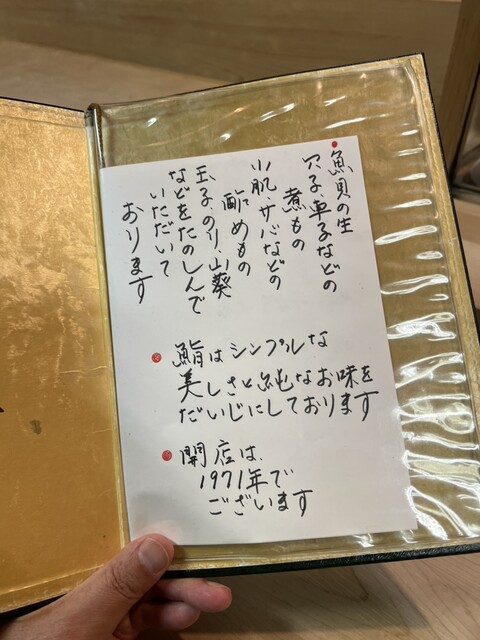 魚貝の生
穴子、車子などの
煮もの
小肌、サバなどの
酢めもの
玉子、のり、山葵
などをたのしんで
いただいて
おります
鮨はシンプルな
美しさと純なお味を
だいじにしております
開店は、
1971年で
ございます